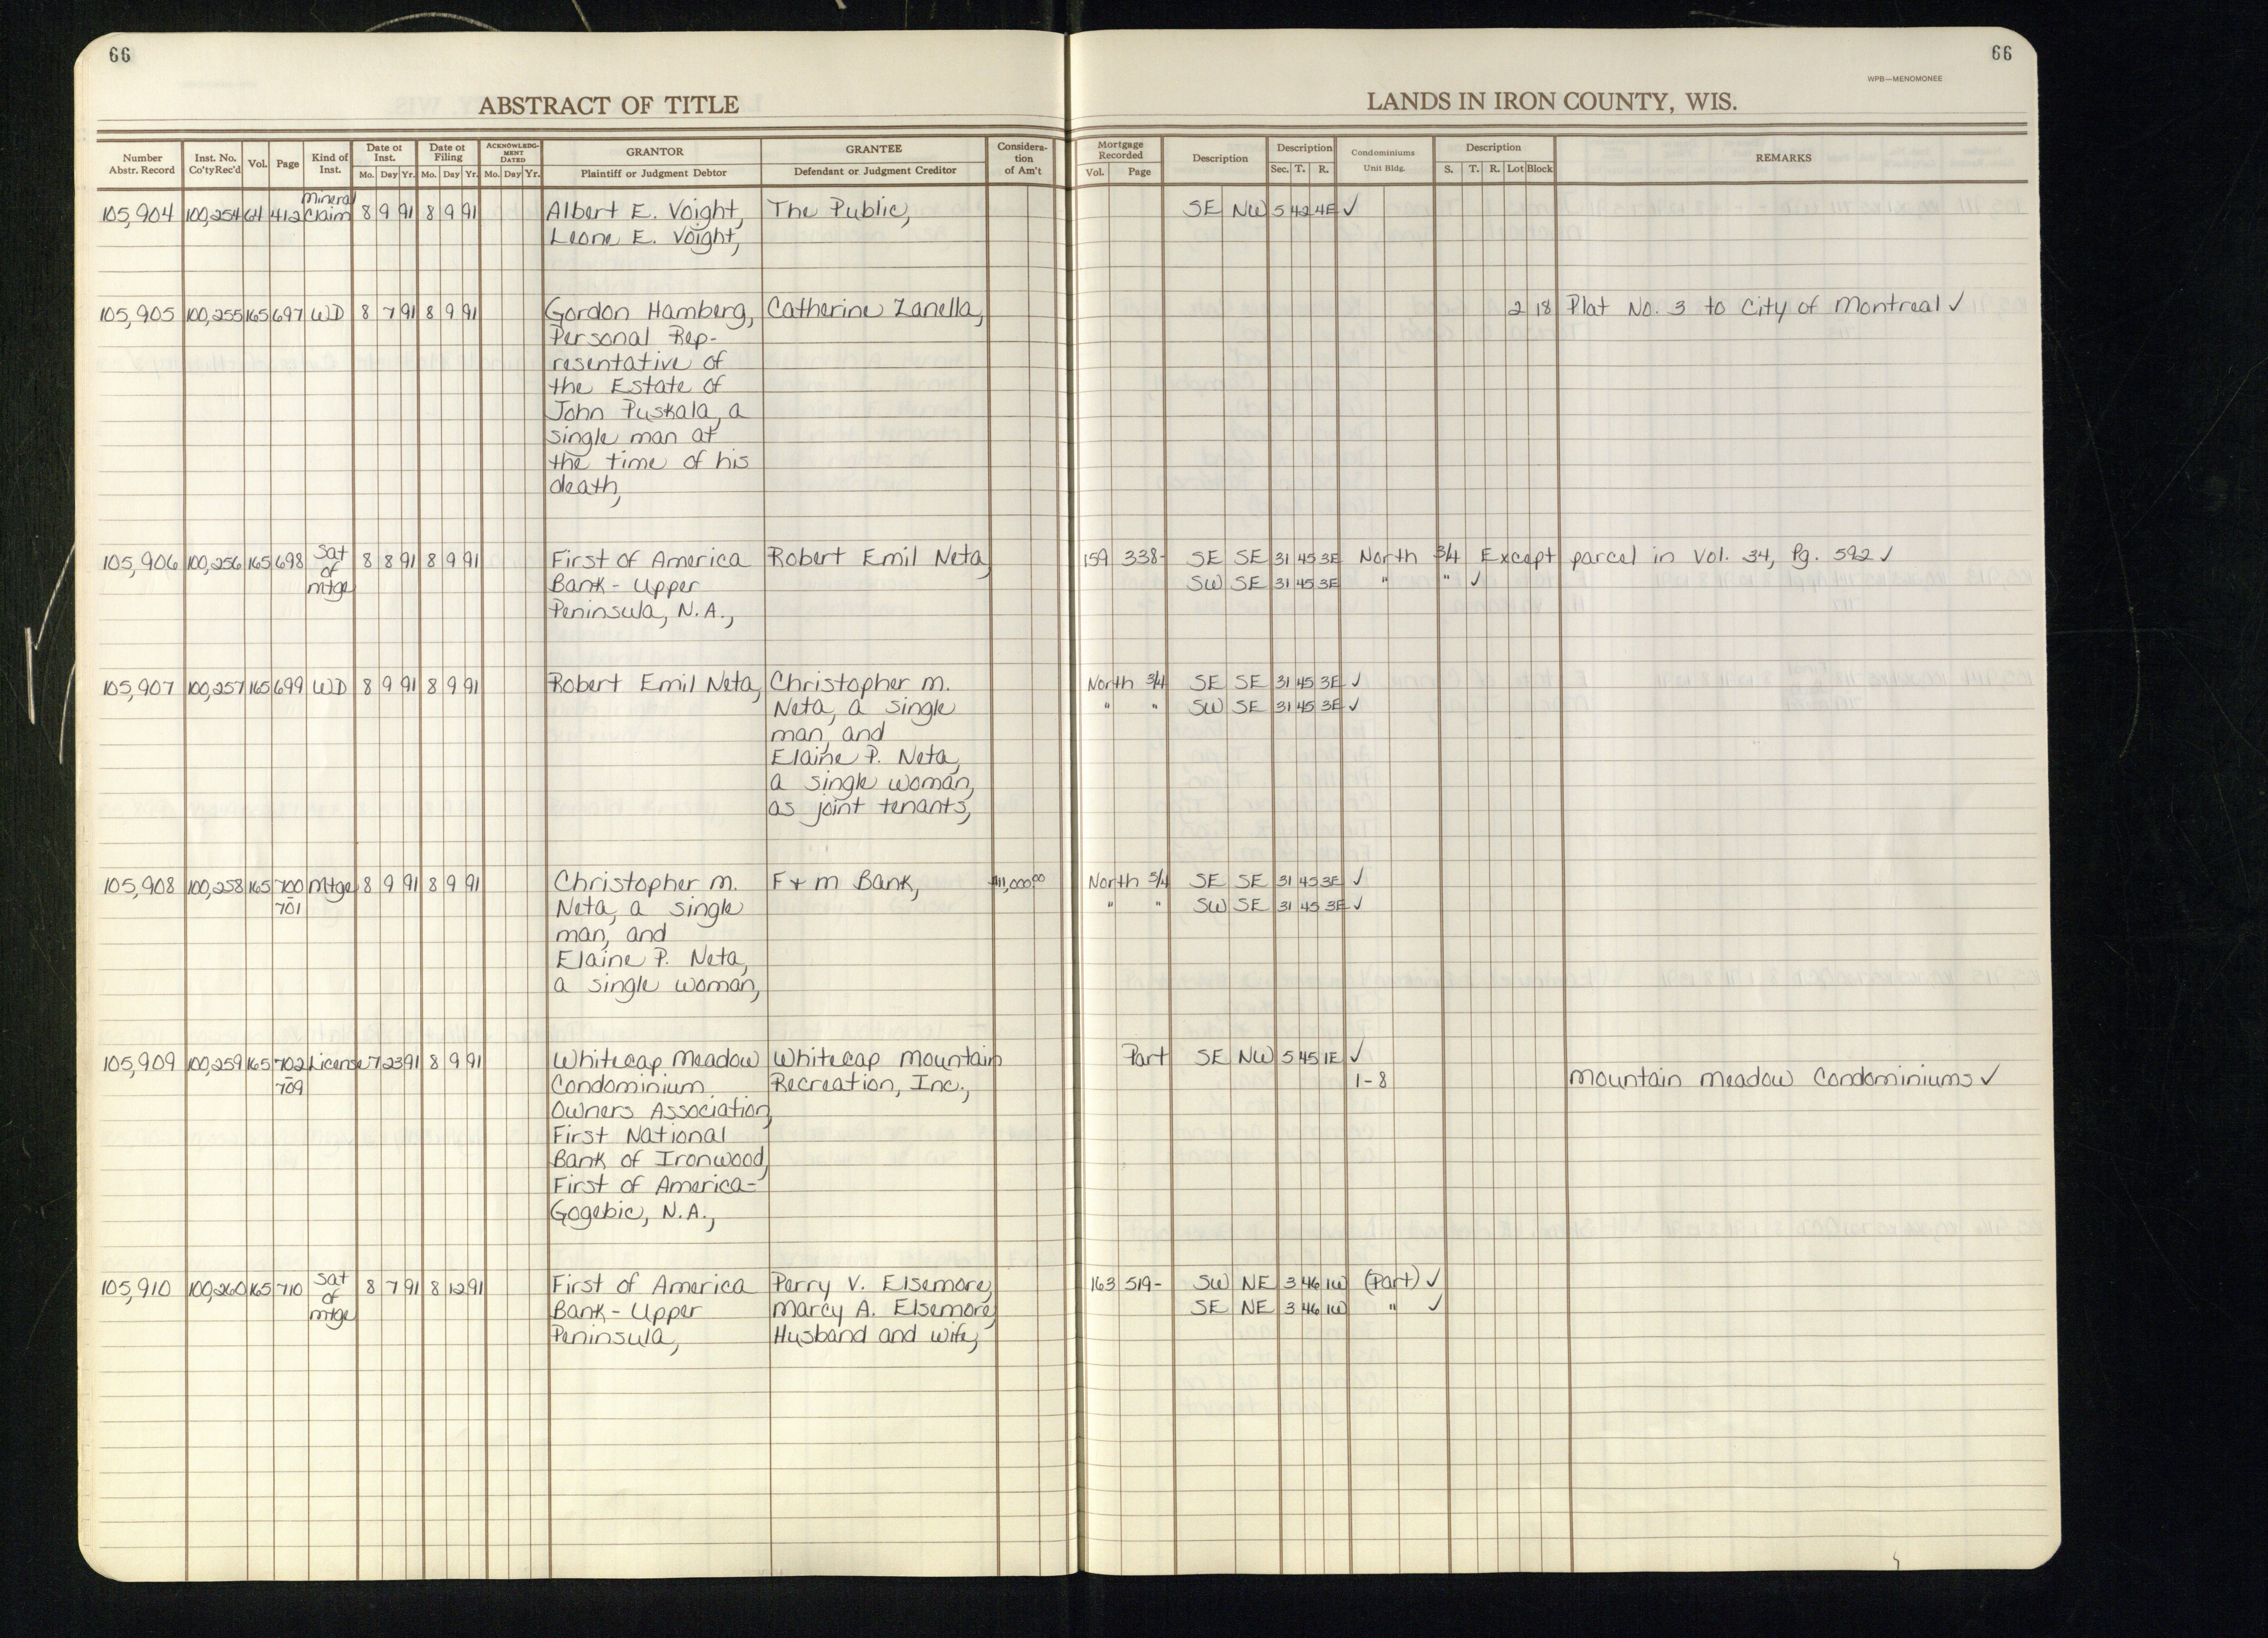 66
66
WPB—MENOMONEE
ABSTRACT OF TITLE
LANDS IN IRON COUNTY, WIS.
Number Abstr. Record Inst. No. Co'ty Rec'd Vol. Page Kind of Inst. Date of Inst. Mo. Day Yr. Date of Filing Mo. Day Yr. ACKNOWLEDGMENT DATED Mo. Day Yr. GRANTOR Plaintiff or Judgment Debtor GRANTEE Defendant or Judgment Creditor Consideration of Am't Mortgage Recorded Vol. Page Description Description Sec. T. R. Condominiums Unit Bldg. Description S. T. R. Lot Block REMARKS
Mineral
105,904 100,254 64 412 Claim 8 9 91 8 9 91 Albert E. Voight, The Public, SE NW 5 42 4E ✓
Leone E. Voight,
105,905 100,255 165 697 WD 8 7 91 8 9 91 Gordon Hamberg, Catherine Zanella, 2 18 Plat No. 3 to City of Montreal ✓
Personal Rep-
resentative of
the Estate of
John Puskala, a
single man at
the time of his
death,
105,906 100,256 165 698 Sat of mtge 8 8 91 8 9 91 First of America Robert Emil Neta, 159 338- SE SE 31 45 3E North 3/4 Except parcel in Vol. 34, Pg. 592 ✓
Bank - Upper SW SE 31 45 3E " " ✓
Peninsula, N.A.,
105,907 100,257 165 699 WD 8 9 91 8 9 91 Robert Emil Neta, Christopher M. North 3/4 SE SE 31 45 3E ✓
Neta, a single " " SW SE 31 45 3E ✓
man, and
Elaine P. Neta,
a single woman,
as joint tenants,
105,908 100,258 165 700 Mtge 8 9 91 8 9 91 Christopher M. F + M Bank, $11,000.00 North 3/4 SE SE 31 45 3E ✓
- 701 Neta, a single " " SW SE 31 45 3E ✓
man, and
Elaine P. Neta,
a single woman,
105,909 100,259 165 702 License 7 23 91 8 9 91 Whitecap Meadow Whitecap Mountain Part SE NW 5 45 1E ✓
- 709 Condominium Recreation, Inc., 1-8 Mountain Meadow Condominiums ✓
Owners Association,
First National
Bank of Ironwood,
First of America-
Gogebic, N.A.,
105,910 100,260 165 710 Sat of mtge 8 7 91 8 12 91 First of America Perry V. Elsemore, 163 519- SW NE 3 46 1W (Part) ✓
Bank - Upper Marcy A. Elsemore, SE NE 3 46 1W " ✓
Peninsula, Husband and wife,